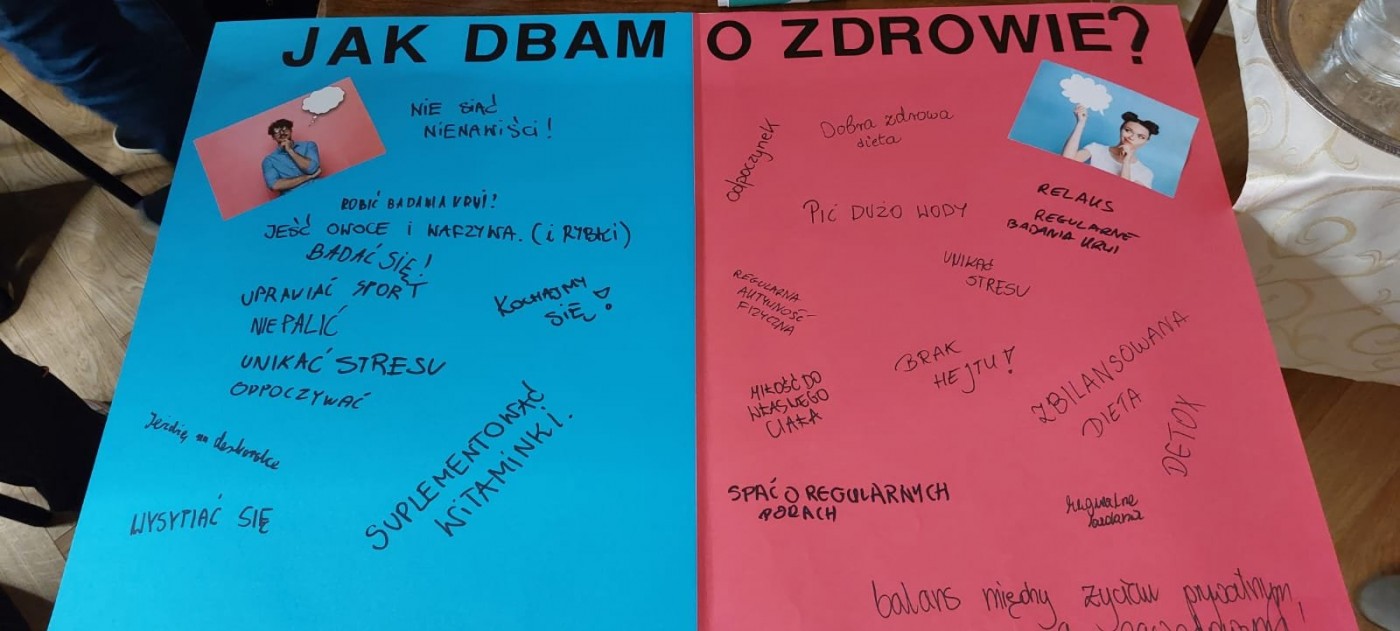 JAK DBAM O ZDROWIE?
NIE SIAĆ
NIENAWIŚCI!
ROBIĆ BADANIA KRWI!
JEŚĆ OWOCE I WARZYWA. (i RYBKI)
BADAĆ SIĘ!
UPRAWIAĆ SPORT
NIE PALIĆ
KOCHAJMY
SIĘ!
UNIKAĆ STRESU
ODPOCZYWAĆ
Jeżdżę na deskorolce
SUPLEMENTOWAĆ
WITAMINKI.
WYSYPIAĆ SIĘ
odpoczynek
Dobra zdrowa
dieta
PIĆ DUŻO WODY
RELAKS
REGULARNE
BADANIA KRWI
UNIKAĆ
STRESU
REGULARNA
AKTYWNOŚĆ
FIZYCZNA
BRAK
HEJTU!
MIŁOŚĆ DO
WŁASNEGO
CIAŁA
ZBILANSOWANA
DIETA
DETOX
SPAĆ O REGULARNYCH
PORACH
regularne
badania
balans między życiem prywatnym,
a zawodowym!